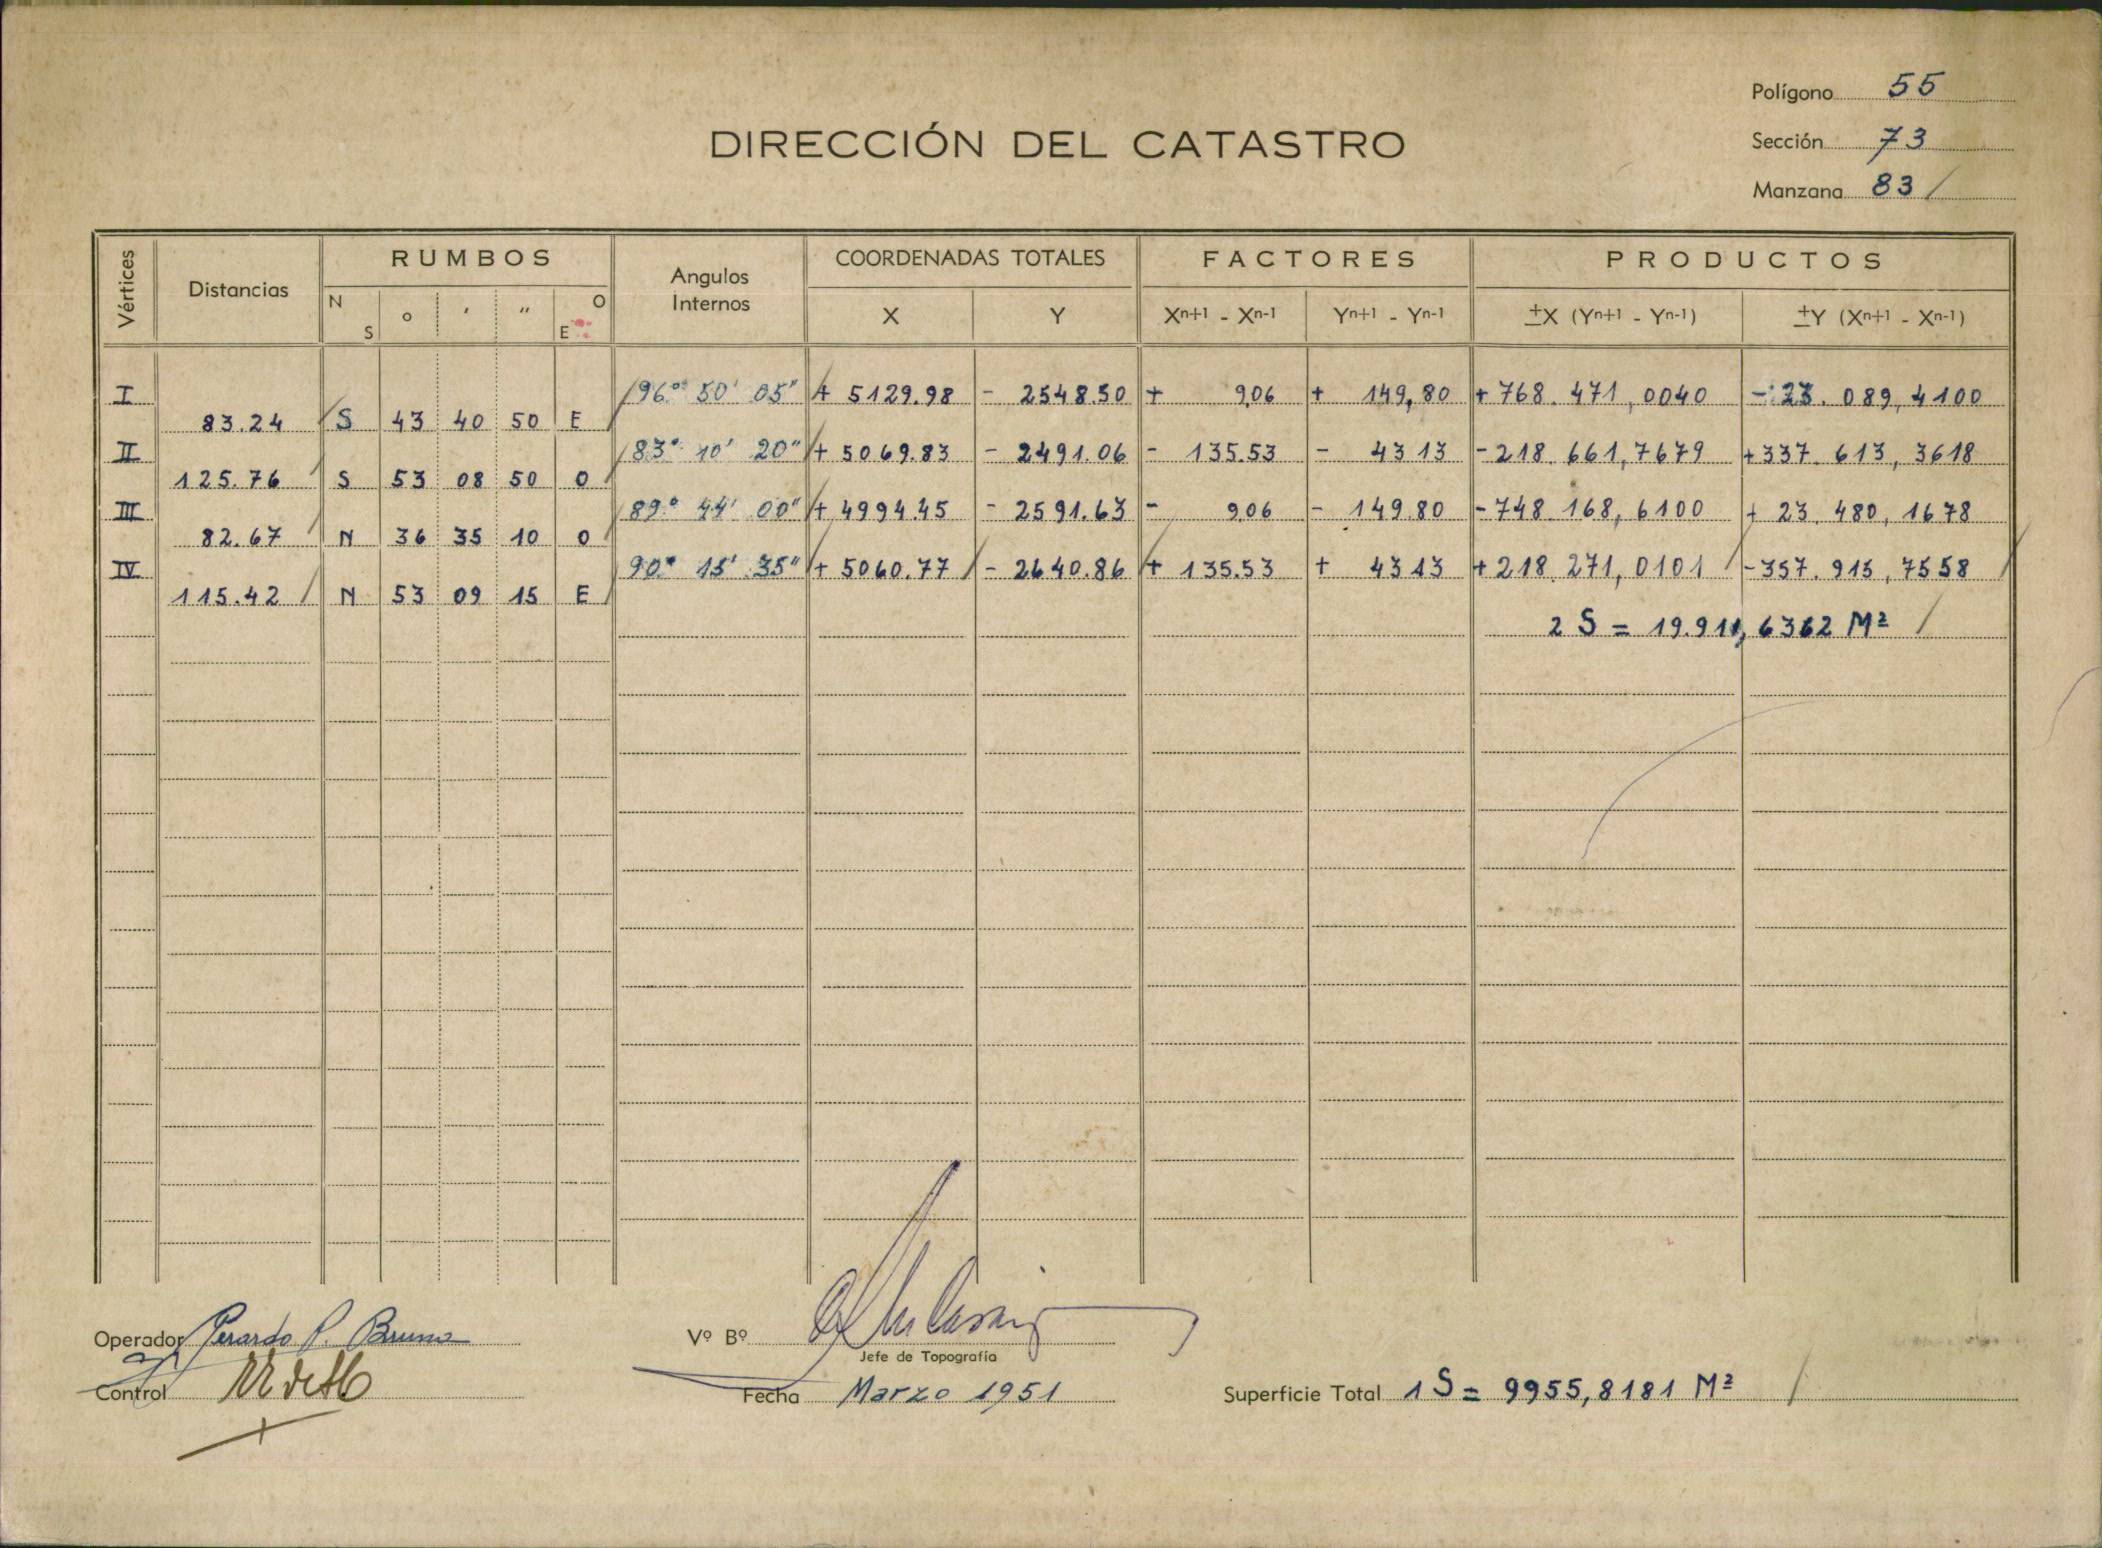 Polígono 55
DIRECCIÓN DEL CATASTRO
Sección 73
Manzana 83 /
Vértices Distancias RUMBOS Angulos Internos COORDENADAS TOTALES FACTORES PRODUCTOS
N S o ' " O E X Y Xn+1 - Xn-1 Yn+1 - Yn-1 ±X (Yn+1 - Yn-1) ±Y (Xn+1 - Xn-1)
I 96° 50' 05" + 5129.98 - 2548.50 + 9,06 + 149,80 + 768.471,0040 - 23.089,4100
83.24 S 43 40 50 E
II 83° 10' 20" + 5069.83 - 2491.06 - 135.53 - 43 13 - 218.661,7679 + 337.613,3618
125.76 S 53 08 50 O
III 89° 44' 00" + 4994.45 - 2591.63 - 9,06 - 149.80 - 748.168,6100 + 23.480,1678
82.67 N 36 35 10 O
IV 90° 15' 35" + 5060.77 - 2640.86 + 135.53 + 43 13 + 218.271,0101 - 357.915,7558
115.42 N 53 09 15 E
2 S = 19.911,6362 M²
Operador P. Bruno
Vº Bº
Jefe de Topografía
Control
Fecha Marzo 1951
Superficie Total 1 S = 9955,8181 M²